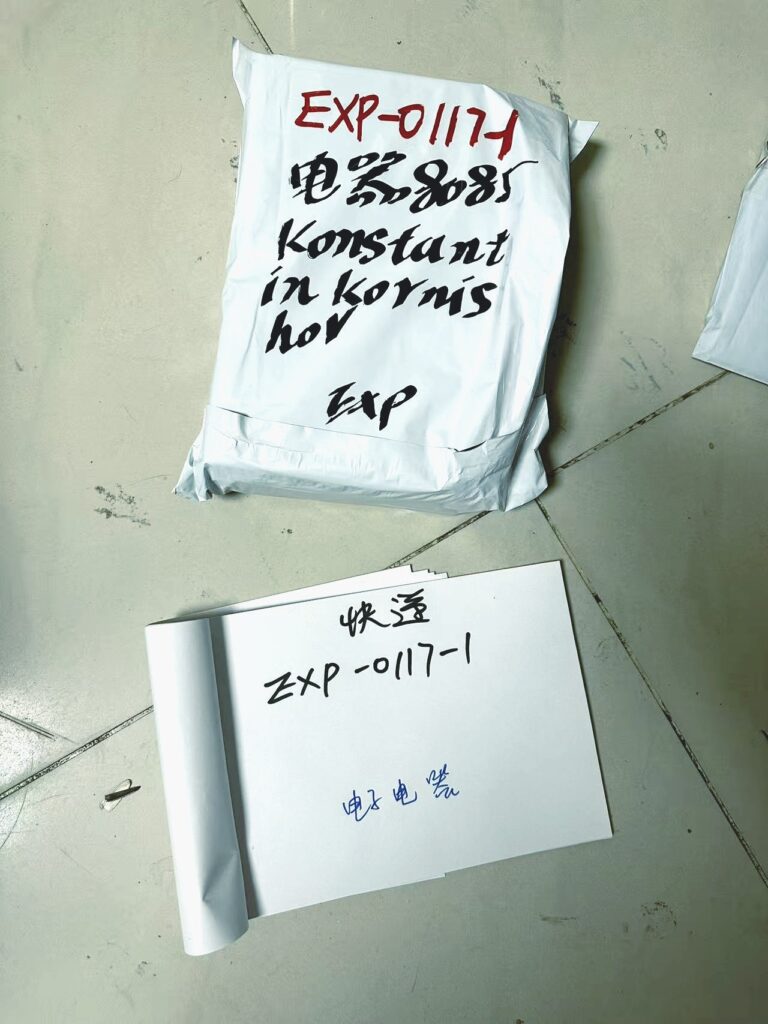 EXP-0117-1
电器8085
Konstant
in kornis
hov
EXP
快递
EXP-0117-1
电子电器